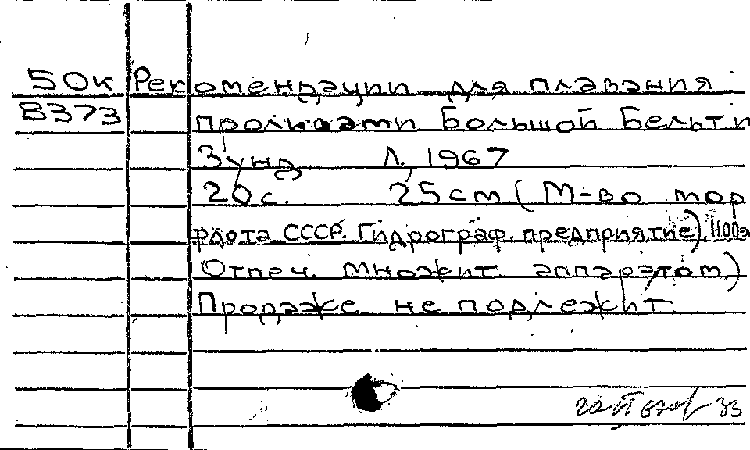 50к Рекомендации для плавания
В373 проливами Большой Бельт и
Зунд Л, 1967
20с. 25см (М-во мор
флота СССР. Гидрограф. предприятие). 1100э
Отпеч. множит. аппаратом)
Продаже не подлежит.
33